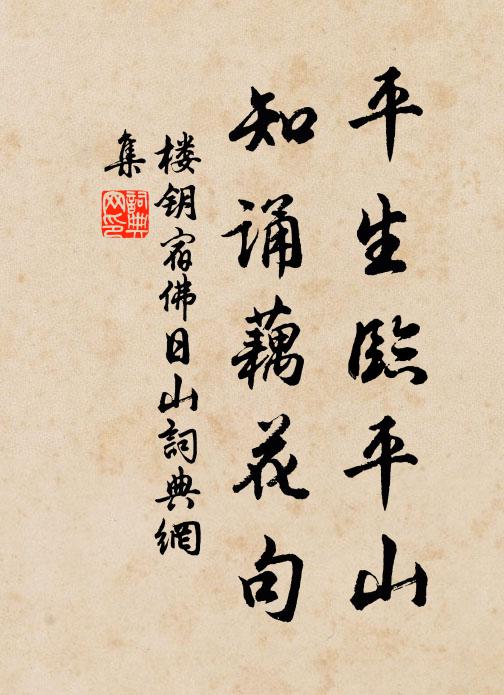 平生臨平山
知誦藕花句
楼钥宿佛日山詞典網
集
詞典
网印